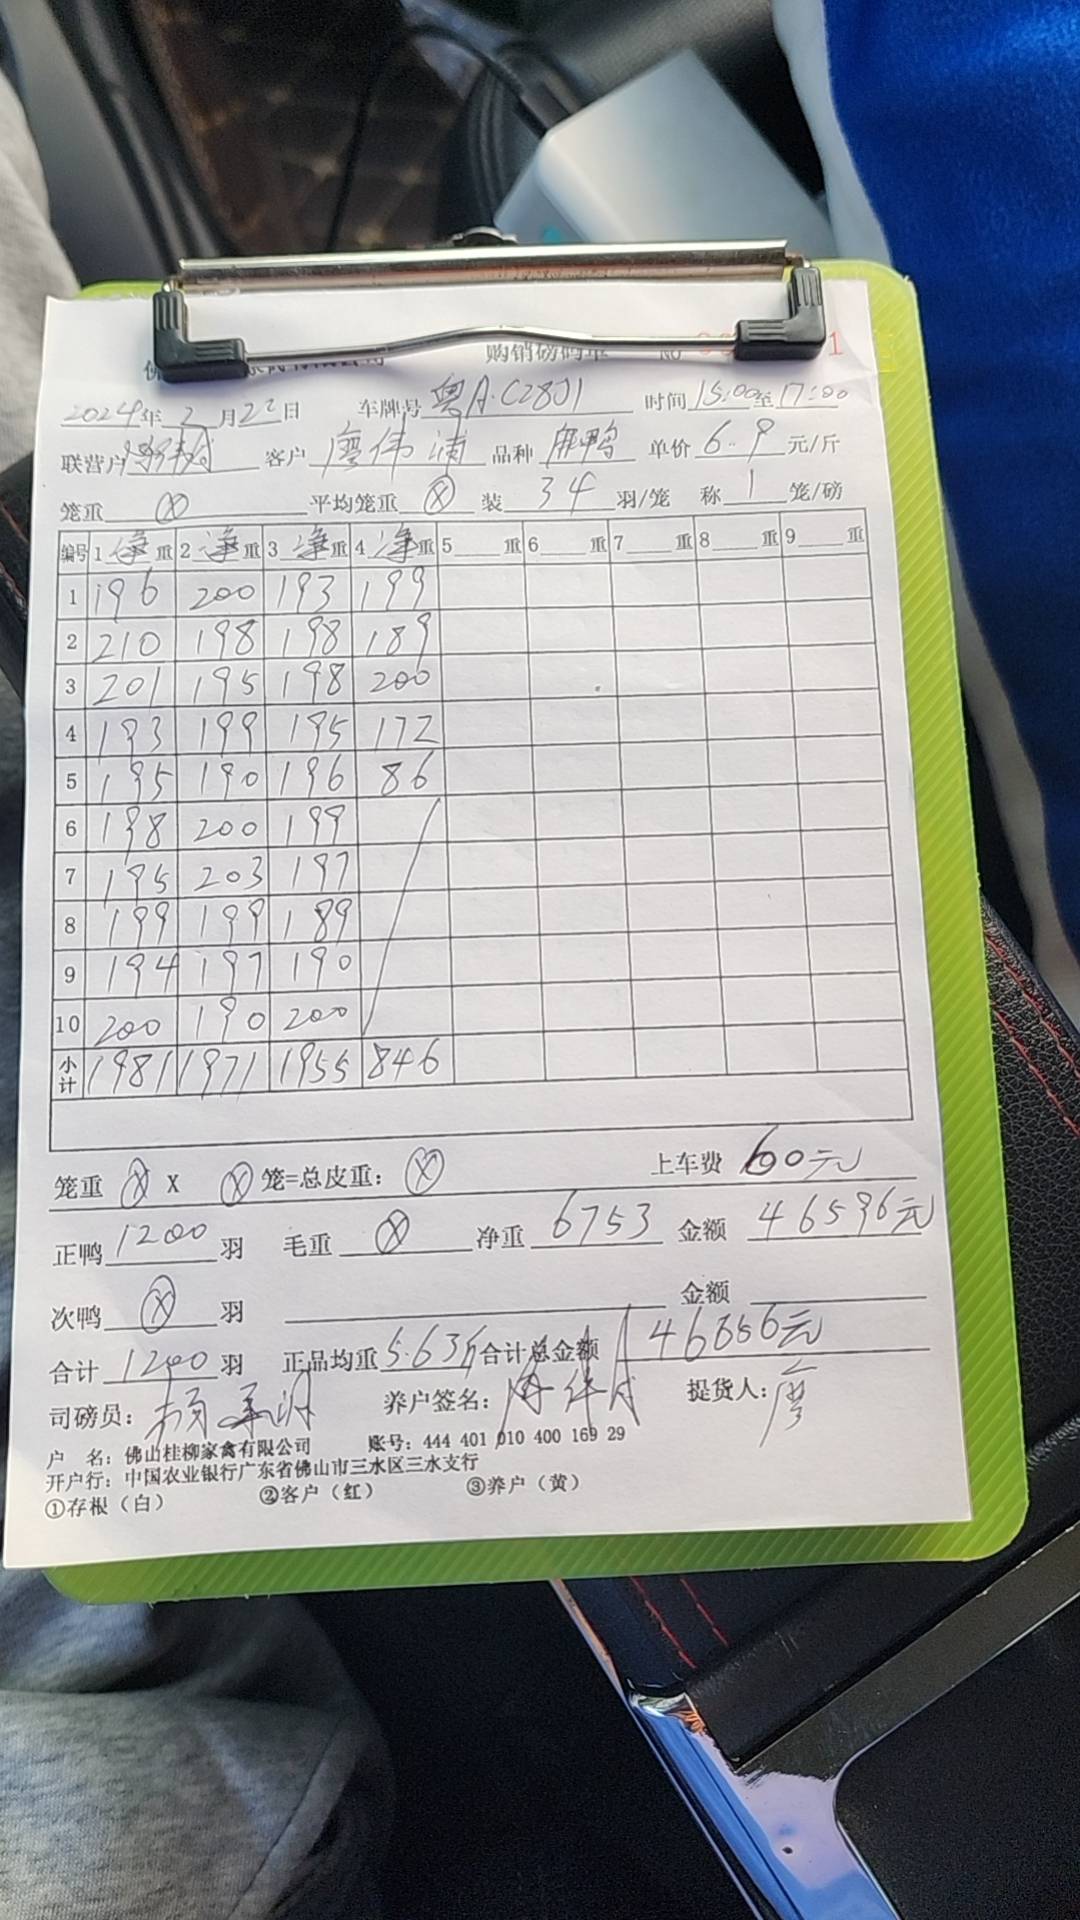 购销磅码单 NO 1
2024年2月22日 车牌号 粤A·C28J1 时间15:00至17:00
联营户 客户 廖伟 品种 麻鸭 单价 6.9 元/斤
笼重 ⓧ 平均笼重 ⓧ 装 34 羽/笼 称 1 笼/磅
编号 1 净 重 2 净 重 3 净 重 4 净 重 5 重 6 重 7 重 8 重 9 重
1 196 200 193 199
2 210 198 198 189
3 201 195 198 200
4 193 199 195 172
5 195 190 196 86
6 198 200 199
7 195 203 197
8 199 199 189
9 194 197 190
10 200 190 200
小计 1981 1971 1955 846
笼重 ⓧ X ⓧ 笼=总皮重: ⓧ 上车费 60元
正鸭 1200 羽 毛重 ⓧ 净重 6753 金额 46596元
次鸭 ⓧ 羽 金额
合计 1200 羽 正品均重 5.63斤 合计总金额 46656元
司磅员: 养户签名: 提货人: 廖
户 名: 佛山桂柳家禽有限公司 账号: 444 401 010 400 169 29
开户行: 中国农业银行广东省佛山市三水区三水支行
①存根（白） ②客户（红） ③养户（黄）